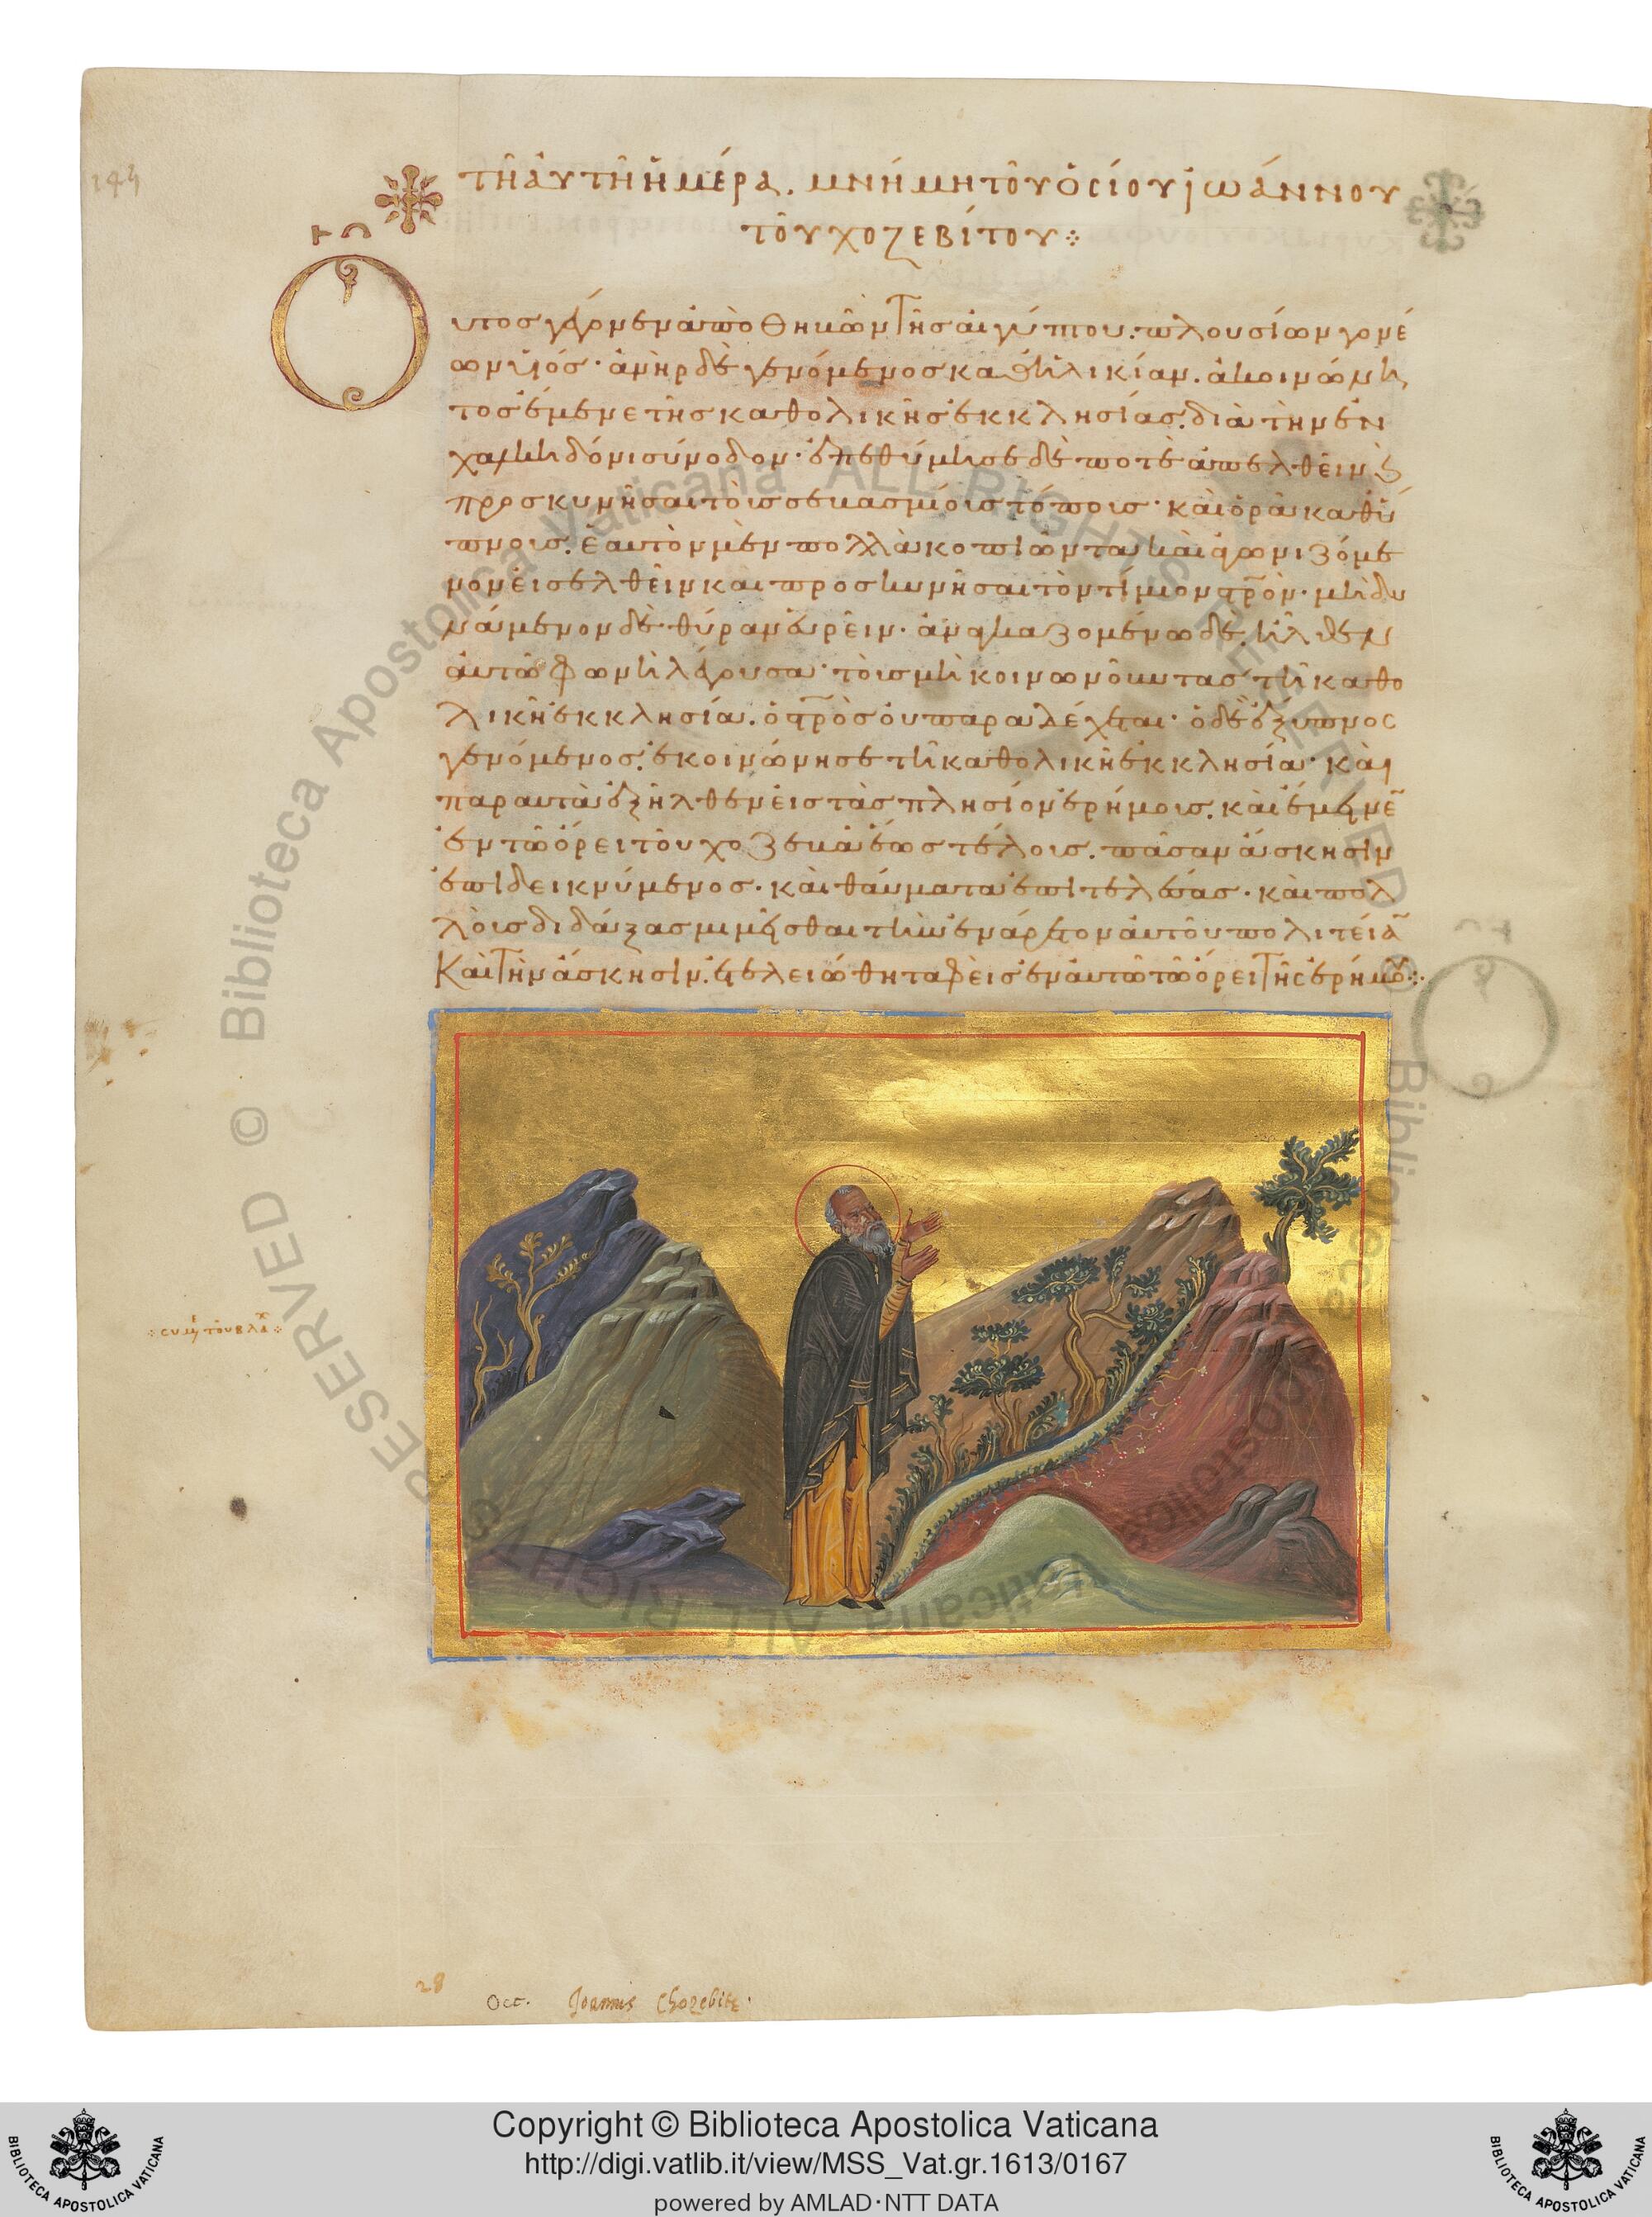 144
τῆ ἀυτῆ ἡμέρα. μνήμη τοῦ ὁσίου ἰωάννου
τοῦ χοζεβίτου
Ουτος γέγονεν ἀπὸ Θηβῶν τῆς αἰγύπτου. πλουσίων γονέ
ων υἱός · ἀνὴρ δὲ γενόμενος καθ ἡλικίαν. ἀκοινώνη
τος ἔμενε τῆς καθολικῆς ἐκκλησίας. διὰ τὴν ἐν
χαλκηδόνι σύνοδον · ἐπεθύμησε δέ ποτε ἀπελθεῖν ϗ
προσκυνῆσαι τοῖς σεβασμίοις τόποις · καὶ ὁρᾶ καθ ὕ
πνοις. ἑαυτὸν μὲν πολλὰ κοπιῶντα καὶ ἀγωνιζόμε
νον εἰσελθεῖν καὶ προσκυνῆσαι τὸν τίμιον στρον · μὴ δυ
νάμενον δὲ θύραν εὑρεῖν · ἀναγκαζομένω δὲ. ἦλθεν
ἀυτῶ φωνὴ λέγουσα · τοὺς μὴ κοινωνοῦντας τῆ καθο
λικῆ ἐκκλησία. ὁ στρος οὐ παραδέχεται · ὁ δὲ ἔξυπνος
γενόμενος. ἐκοινώνησε τῆ καθολικῆ ἐκκλησία · καὶ
παραυτὰ ἐξῆλθεν εἰς τὰς πλησίον ἐρήμους. καὶ ἔμεινε
ἐν τῶ ὄρει τοῦ χοζεβᾶ ἕως τέλους. πᾶσαν ἄσκησιν
ἐπιδεικνύμενος · καὶ θαύματα ἐπιτελέσας · καὶ πολ
λοὺς διδάξας μιμεῖσθαι τὴν ἐνάρετον ἀυτοῦ πολιτείαν
Καὶ τὴν ἄσκησιν. ἐτελειώθη ταφεὶς ἐν ἀυτῶ τῶ ὄρει τῆς ἐρήμου
συμε τοῦ βλαχ
28
Occ. Joannis Chozebite.
Biblioteca Apostolica Vaticana ALL RIGHTS RESERVED ©
Copyright © Biblioteca Apostolica Vaticana
http://digi.vatlib.it/view/MSS_Vat.gr.1613/0167
powered by AMLAD·NTT DATA
BIBLIOTECA APOSTOLICA VATICANA
BIBLIOTECA APOSTOLICA VATICANA